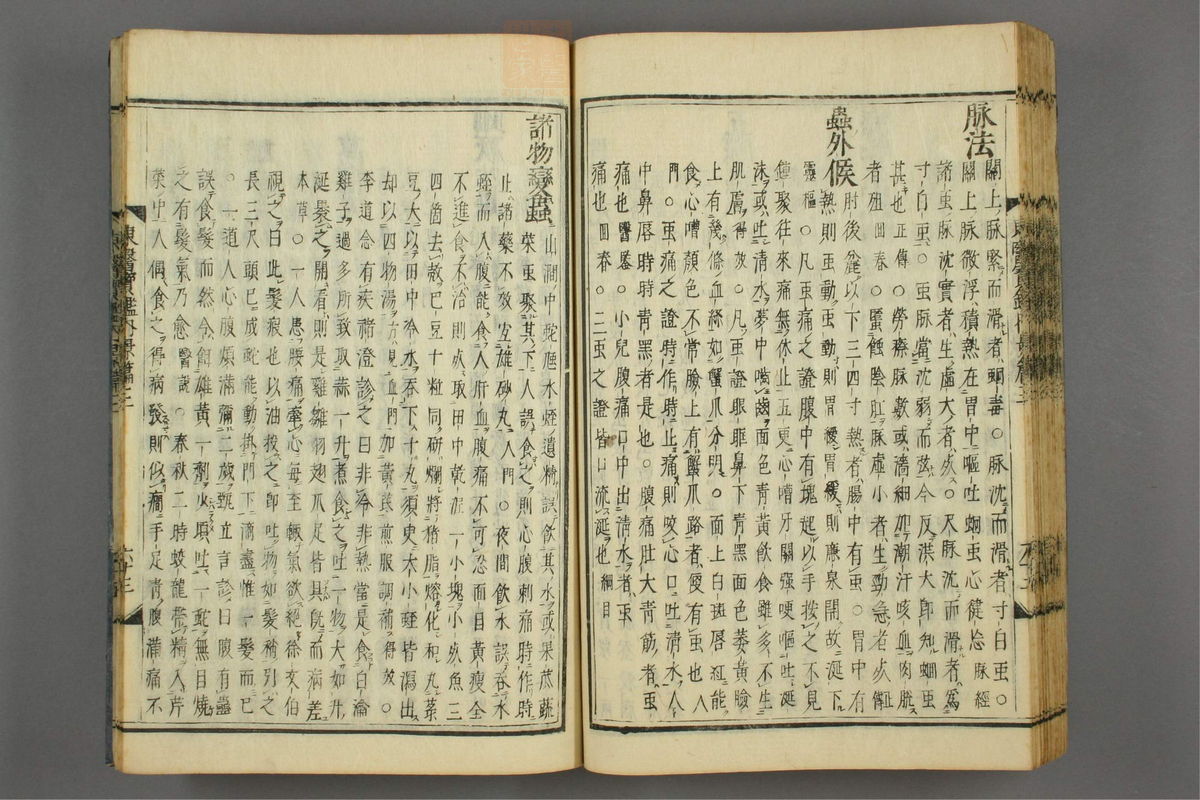 脉法
關上脉緊而滑者蛔毒○脉沈而滑者寸白䖝○
關上脉微浮積熱在胃中嘔吐蛔䖝心健忘脉經
諸䖝脉沈實者生虛大者死○尺脉沈而滑者爲
寸白䖝○䖝脉當沈弱而弦今反洪大卽知蛔䖝
甚也正傳○勞瘵脉數或濇細如潮汗咳血肉脫
者殂回春○䘌蝕陰肛脉虛小者生勁急者死醫鑑
蟲外候
肘後麄以下三四寸熱者腸中有䖝○胃中有
熱則䖝動䖝動則胃緩胃緩則廉泉開故涎下
靈樞○凡䖝痛之證腹中有塊起以手按之不見
衝聚往來痛無休止五更心嘈牙關强哽嘔吐涎
沫或吐淸水夢中嚙齒面色靑黃飮食雖多不生
肌膚得效○凡䖝證眼眶鼻下靑黑面色萎黃臉
上有幾條血絲如蟹爪分明○面上白斑唇紅能
食心嘈顔色不常臉上有蟹爪路者便有䖝也入
門○䖝痛之證時作時止痛則咬心口吐淸水人
中鼻唇時時靑黑者是也○腹痛肚大靑筋者䖝
痛也醫鑑○小兒腹痛口中出淸水者䖝
痛也回春○三䖝之證皆口流涎也綱目
諸物變蟲
山澗中蛇虺水蛭遺精誤飮其水或果蓏蔬
菜䖝聚其下人誤食之則心腹刺痛時作時
止諸藥不效宜雄砂丸入門○夜間飮水誤呑水
蛭而入腹能食人肝血腹痛不可忍面目黃瘦全
不進食不治則死取田中乾泥一小塊小死魚三
四箇去殼巴豆十粒同硏爛將猪脂熔化和丸菉
豆大以田中冷水呑下十丸須臾大小蛭皆瀉出
却以四物湯方見血門加黃芪煎服調補得效○
李道念有疾褚澄診之曰非冷非熱當是食白瀹
雞子過多所致取蒜一升煮食之吐一物大如升
涎裹之開看則是雞雛羽翅爪足皆具旣而病差
本草○一人患腰痛牽心每至輒氣欲絶徐文伯
視之曰此髮瘕也以油投之卽吐物如髮稍引之
長三尺頭已成蛇能動掛門下滴盡惟一髮而已
○一道人心腹煩滿彌二歲甄立言診曰腹有蠱
誤食髮而然令餌雄黃一劑少頃吐一蛇無目燒
之有髮氣乃愈醫說○春秋二時蛟龍帶精入芹
菜中人偶食之得病發則似癎手足靑腹滿痛不